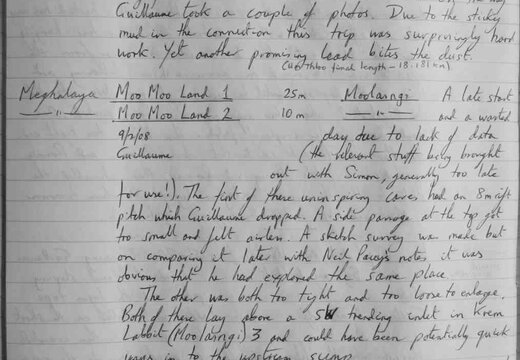 Guillaume took a couple of photos. Due to the sticky
mud in the connection this trip was surprisingly hard
work. Yet another promising lead bites the dust.
(Um Thloo final length - 18.181km)
Meghalaya Moo Moo Land 1 25m Moolasngi A late start
—"— Moo Moo Land 2 10m —"— and a wasted
9/2/08 day due to lack of data
Guillaume (the relevant stuff being brought
out with Simon, generally too late
for use!). The first of these uninspiring caves had an 8m rift
pitch which Guillaume dropped. A side passage at the top got
too small and felt airless. A sketch survey was made but
on comparing it later with Neil Pacey's notes it was
obvious that he had explored the same place.
The other was both too tight and too loose to enlarge.
Both of these lay above a SW trending inlet in Krem
Labbit (Moolasngi) 3 and could have been potentially quick
ways in to the upstream sump